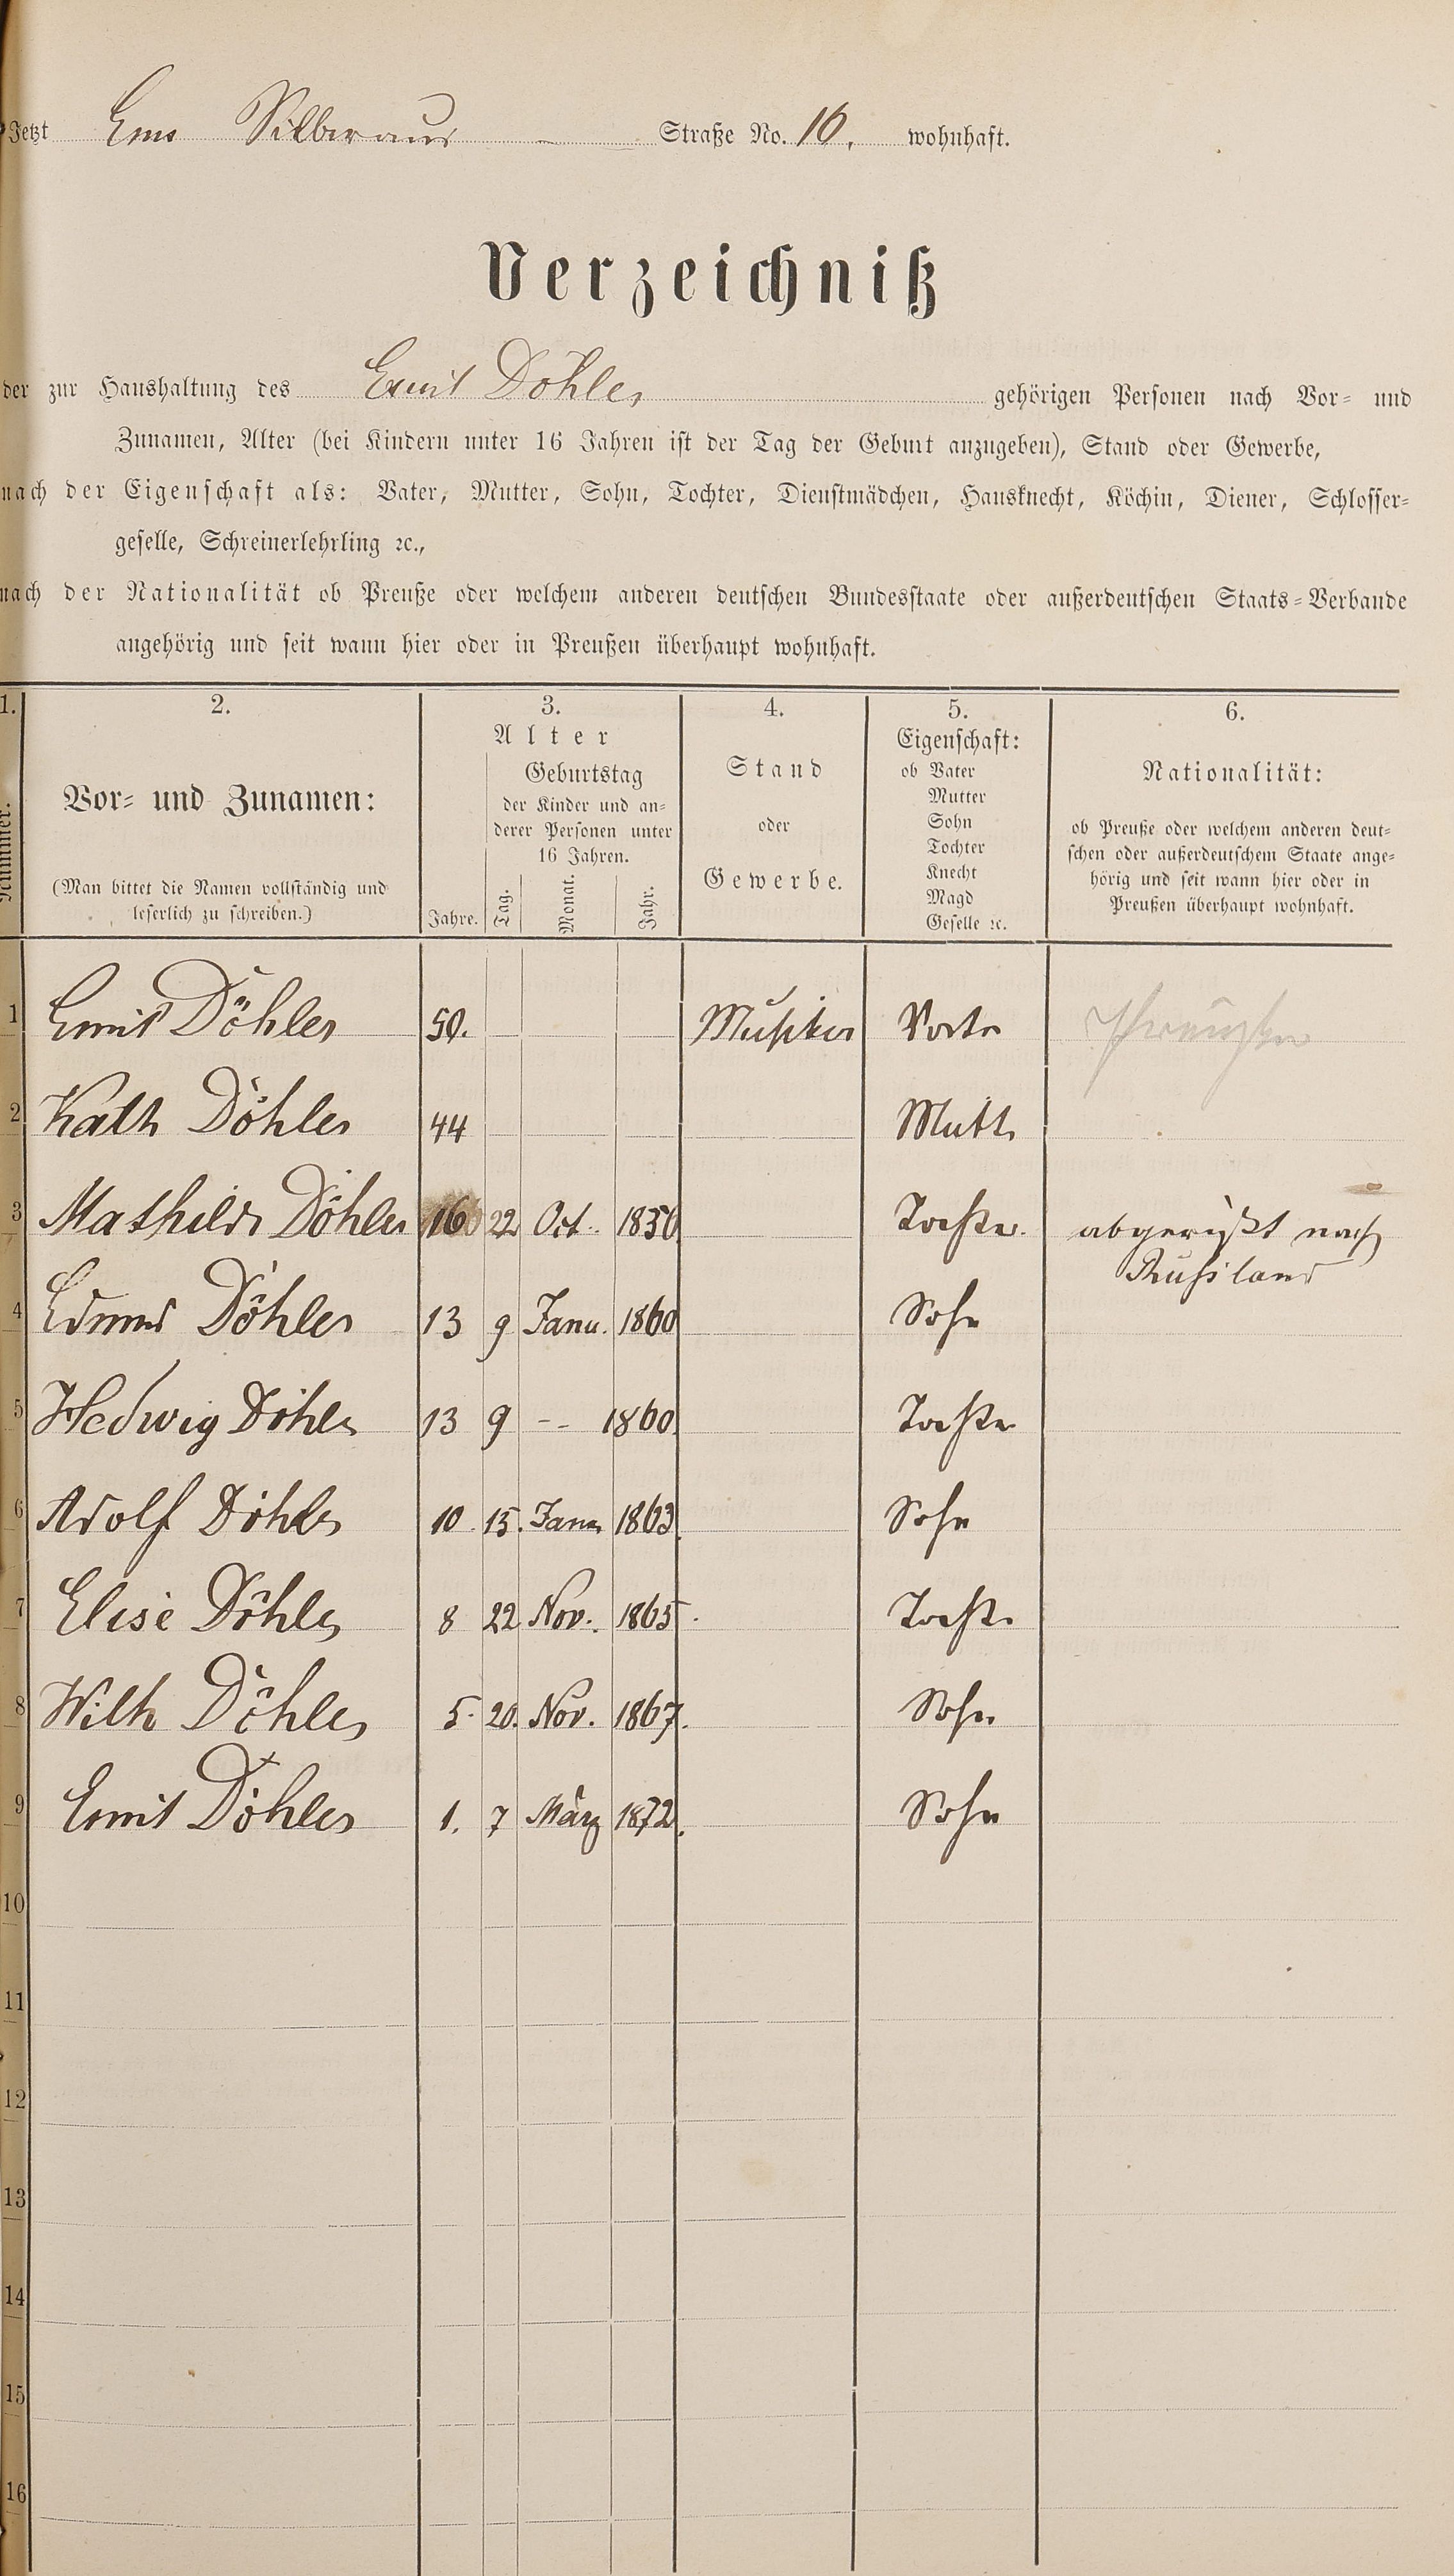 Jetzt Ems Silberau Straße No. 16. wohnhaft.
Verzeichniß
der zur Haushaltung des Emil Döhler gehörigen Personen nach Vor- und
Zunamen, Alter (bei Kindern unter 16 Jahren ist der Tag der Geburt anzugeben), Stand oder Gewerbe,
nach der Eigenschaft als: Vater, Mutter, Sohn, Tochter, Dienstmädchen, Hausknecht, Köchin, Diener, Schlosser-
geselle, Schreinerlehrling ꝛc.,
nach der Nationalität ob Preuße oder welchem anderen deutschen Bundesstaate oder außerdeutschen Staats-Verbande
angehörig und seit wann hier oder in Preußen überhaupt wohnhaft.
1. 2. 3. 4. 5. 6.
Nummer.
Vor- und Zunamen:
(Man bittet die Namen vollständig und
leserlich zu schreiben.)
Alter
Jahre.
Geburtstag
der Kinder und an-
derer Personen unter
16 Jahren.
Tag. Monat. Jahr.
Stand
oder
Gewerbe.
Eigenschaft:
ob Vater
Mutter
Sohn
Tochter
Knecht
Magd
Geselle ꝛc.
Nationalität:
ob Preuße oder welchem anderen deut-
schen oder außerdeutschem Staate ange-
hörig und seit wann hier oder in
Preußen überhaupt wohnhaft.
1 Emil Döhler 50. Musiker Vater Preußen
2 Kath Döhler 44 Mutt.
3 Mathilde Döhler 16 22 Oct. 1856 Tochter. abgereist nach
Russland
4 Edmund Döhler 13 9 Janu. 1860 Sohn
5 Hedwig Döhler 13 9 -- 1860. Tochter
6 Adolf Döhler 10. 15. Janu 1863. Sohn
7 Elise Döhler 8 22 Nov. 1865. Tocht.
8 Wilh Döhler 5. 20. Nov. 1867. Sohn
9 Emil Döhler 1. 7 März 1872. Sohn
10
11
12
13
14
15
16